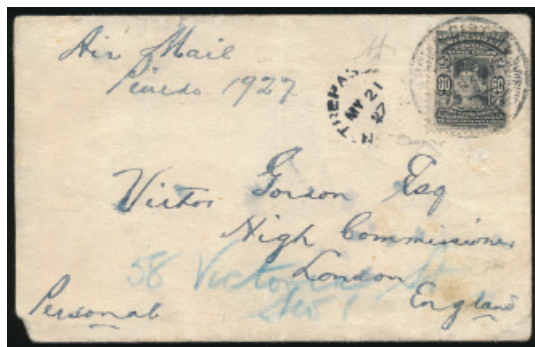 Air Mail
Pinedo 1927
TREPASS
MY 21
27
60 60
Victor Gordon Esq
High Commissioner
London
England
58 Victoria St
SW 1
Personal